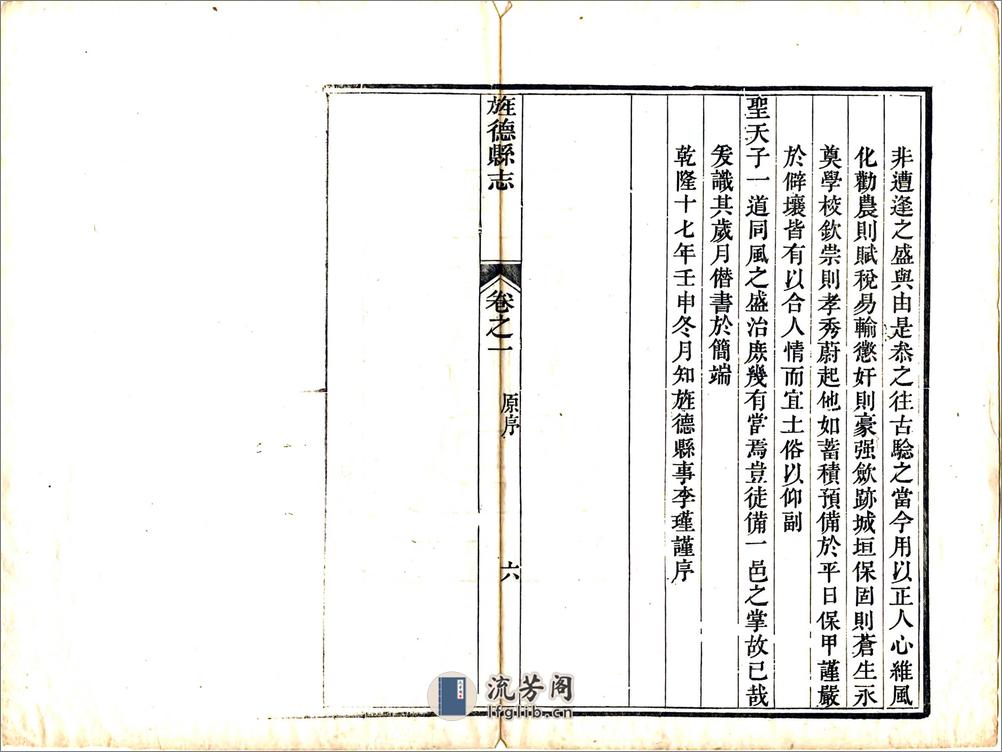 非遭逢之盛與由是叅之往古騐之當今用以正人心維風
化勸農則賦稅易輸懲奸則豪强歛跡城垣保固則蒼生永
奠學校欽崇則孝秀蔚起他如蓄積預備於平日保甲謹嚴
於僻壤皆有以合人情而宜土俗以仰副
聖天子一道同風之盛治庶幾有當焉豈徒備一邑之掌故已哉
爰識其歲月僭書於簡端
乾隆十七年壬申冬月知旌德縣事李瑾謹序
旌德縣志
卷之一
原序
六
流芳阁
lfglib.cn